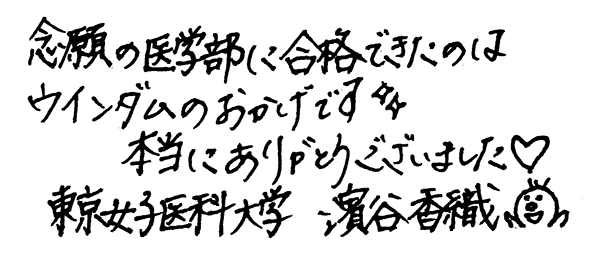 念願の医学部に合格できたのは
ウインダムのおかげです
本当にありがとうございました♡
東京女子医科大学 濱谷香織